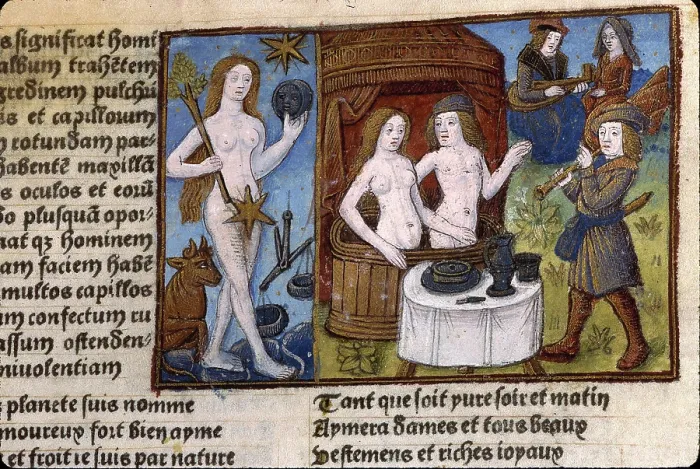 significat homi
album trahētem
gredinem pulchri
is et capillorum
rotundam par-
habentē maxillā
s oculos et eorū
plusquā opor-
nat qz hominem
am faciem habē
multos capillos
um confectum ru
assum ostenden-
nivolentiam
planete suis nomme
moureux fort bien ayme
et froit ie suis par nature
Tant que soit yure soir et matin
Aymera dames et tous beaux
Vestemens et riches ioyaux